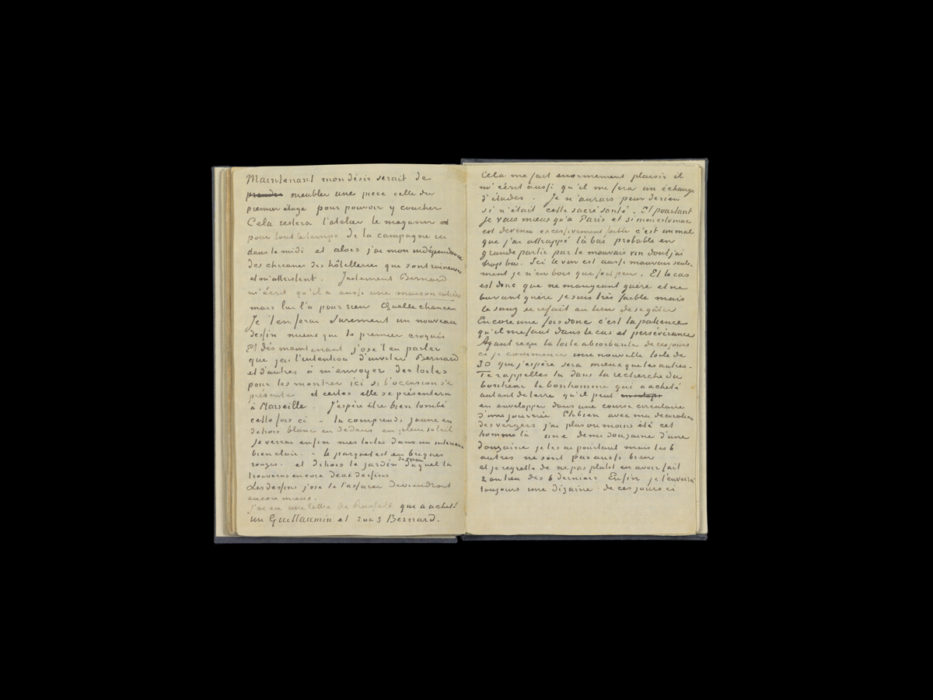 Maintenant mon désir serait de
prendre meubler une piece celle du
premier étage pour pouvoir y coucher
Cela restera l'atelier le magasin et
pour tout le temps de la campagne ici
dans le midi et alors j'ai mon indépendance
des chicanes des hôtelleries que sont ruineuses
et m'attristent. Justement Bernard
m'écrit qu'il a aussi une maison entière
mais lui l'a pour rien Quelle chance
Je t'en ferai surement un nouveau
dessin mieux que le premier croquis
Et dès maintenant j'ose t'en parler
que j'ai l'intention d'inviter Bernard
et d'autres à m'envoyer des toiles
pour les montrer ici si l'occasion s'en
présente et certes elle se présentera
à Marseille. J'espère être bien tombé
cette fois ci – tu comprends jaune en
dehors blanc en dedans en plein soleil
je verrai enfin mes toiles dans un intérieur
bien clair. – le parquet est en briques
rouges. et dehors le jardin de la place duquel tu
trouveras encore deux dessins
Les dessins j'ose te l'assurer deviendront
encore mieux.
J'ai eu une lettre de qui a acheté
un Guillaumin et 2 ou 3 Bernard.
Cela me fait énormément plaisir et
m'écrit aussi qu'il me fera un échange
d'études. Je n'aurais peur de rien
si n'était cette sacré santé. Et pourtant
je vais mieux qu'à Paris et si mon estomac
est devenu excessivement faible c'est un mal
que j'ai attrappé là bas probable en
grande partie par le mauvais vin dont j'ai
trop bu. Ici le vin est aussi mauvais seule-
ment je n'en bois que fort peu. Et le cas
est donc que ne mangeant guère et ne
buvant guère je suis très faible mais
le sang se refait au lieu de se gâter.
Encore une fois donc c'est la patience
qu'il me faut dans le cas et perseverance
Ayant reçu la toile absorbante de ces jours
ci je commence une nouvelle toile de
30 qui j'espère sera mieux que les autres.
Te rappelles tu dans la recherche du
bonheur le bonhomme qui a acheté
autant de terre qu'il peut
en envelopper dans une course circulaire
d'une journée Eh bien avec ma décoration
des vergers j'ai plus ou moins été cet
homme là une demi douzaine d'une
douzaine je les ai pourtant mais les 6
autres ne sont pas aussi bien
et je regrette de ne pas plutôt en avoir fait
2 au lieu des 6 derniers Enfin je t'enverrai
toujours une dizaine de ces jours ci